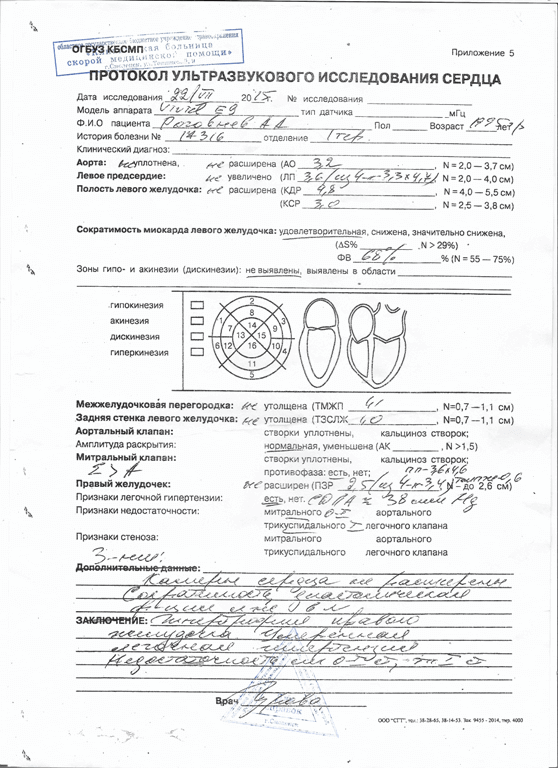 ОГБУЗ КБСМП
скорой медицинской помощи»
Приложение 5
ПРОТОКОЛ УЛЬТРАЗВУКОВОГО ИССЛЕДОВАНИЯ СЕРДЦА
Дата исследования 22/VII 2015г. № исследования
Модель аппарата Vivid E9 тип датчика мГц
Ф.И.О пациента Пол Возраст
История болезни № 17316 отделение 1 тер.
Клинический диагноз:
Аорта: уплотнена, не расширена (АО 3,2 , N = 2,0 – 3,7 см)
Левое предсердие: не увеличено (ЛП 3,6 / 4-к-3,3х4,7 , N = 2,0 – 4,0 см)
Полость левого желудочка: не расширена (КДР 4,8 , N = 4,0 – 5,5 см)
(КСР 3,0 , N = 2,5 – 3,8 см)
Сократимость миокарда левого желудочка: удовлетворительная, снижена, значительно снижена,
(ΔS% , N > 29%)
ФВ 68% % (N = 55 — 75%)
Зоны гипо- и акинезии (дискинезии): не выявлены, выявлены в области
гипокинезия
акинезия
дискинезия
гиперкинезия
2
8
1 7 14 9 3
13 15
6 12 16 10 4
11
5
Межжелудочковая перегородка: не утолщена (ТМЖП , N=0,7 —1,1 см)
Задняя стенка левого желудочка: не утолщена (ТЗСЛЖ 1,0 , N=0,7 —1,1 см)
Аортальный клапан: створки уплотнены, кальциноз створок;
Амплитуда раскрытия: нормальная, уменьшена (АК , N >1,5)
Митральный клапан: створки уплотнены, кальциноз створок;
E>A противофаза: есть, нет; пп-3,6х4,6
Правый желудочек: не расширен (ПЗР 2,5 / 4-к-3,4 N – до 2,6 см) 0,6
Признаки легочной гипертензии: есть, нет. СДЛА ≈ 38 Hg
Признаки недостаточности: митрального 0-I аортального
трикуспидального I легочного клапана
Признаки стеноза: митрального аортального
трикуспидального легочного клапана
Дополнительные данные:
Камеры сердца не расширены
Сократимость
ЗАКЛЮЧЕНИЕ: правого
желудочка Умеренная
легочная гипертензия
Недостаточность 0-I I
Врач
ООО "СГТ", тел.: 38-28-65, 38-14-53. Зак. 9455 - 2014, тир. 4000